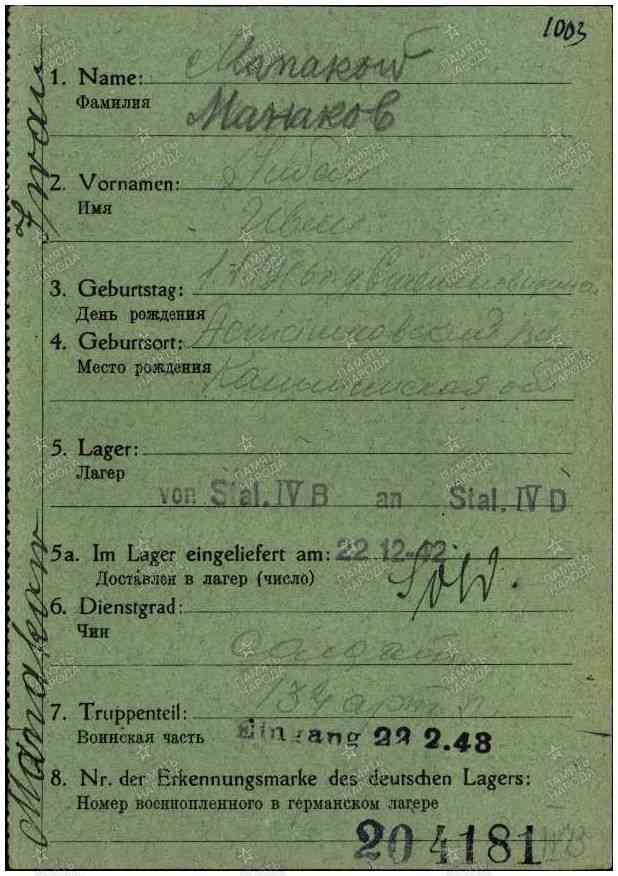 1003
1. Name:
Фамилия
Манаков
2. Vornamen:
Имя
Иван
3. Geburtstag:
День рождения
4. Geburtsort:
Место рождения
5. Lager:
Лагер
von Stal. IV B an Stal. IV D
5a. Im Lager eingeliefert am: 22 12.42.
Доставлен в лагер (число)
Sold.
6. Dienstgrad:
Чин
солдат
7. Truppenteil:
Воинская часть
Eingang 22 2.43
8. Nr. der Erkennungsmarke des deutschen Lagers:
Номер военнопленного в германском лагере
204181
Manakow Iwan
ПАМЯТЬ НАРОДА